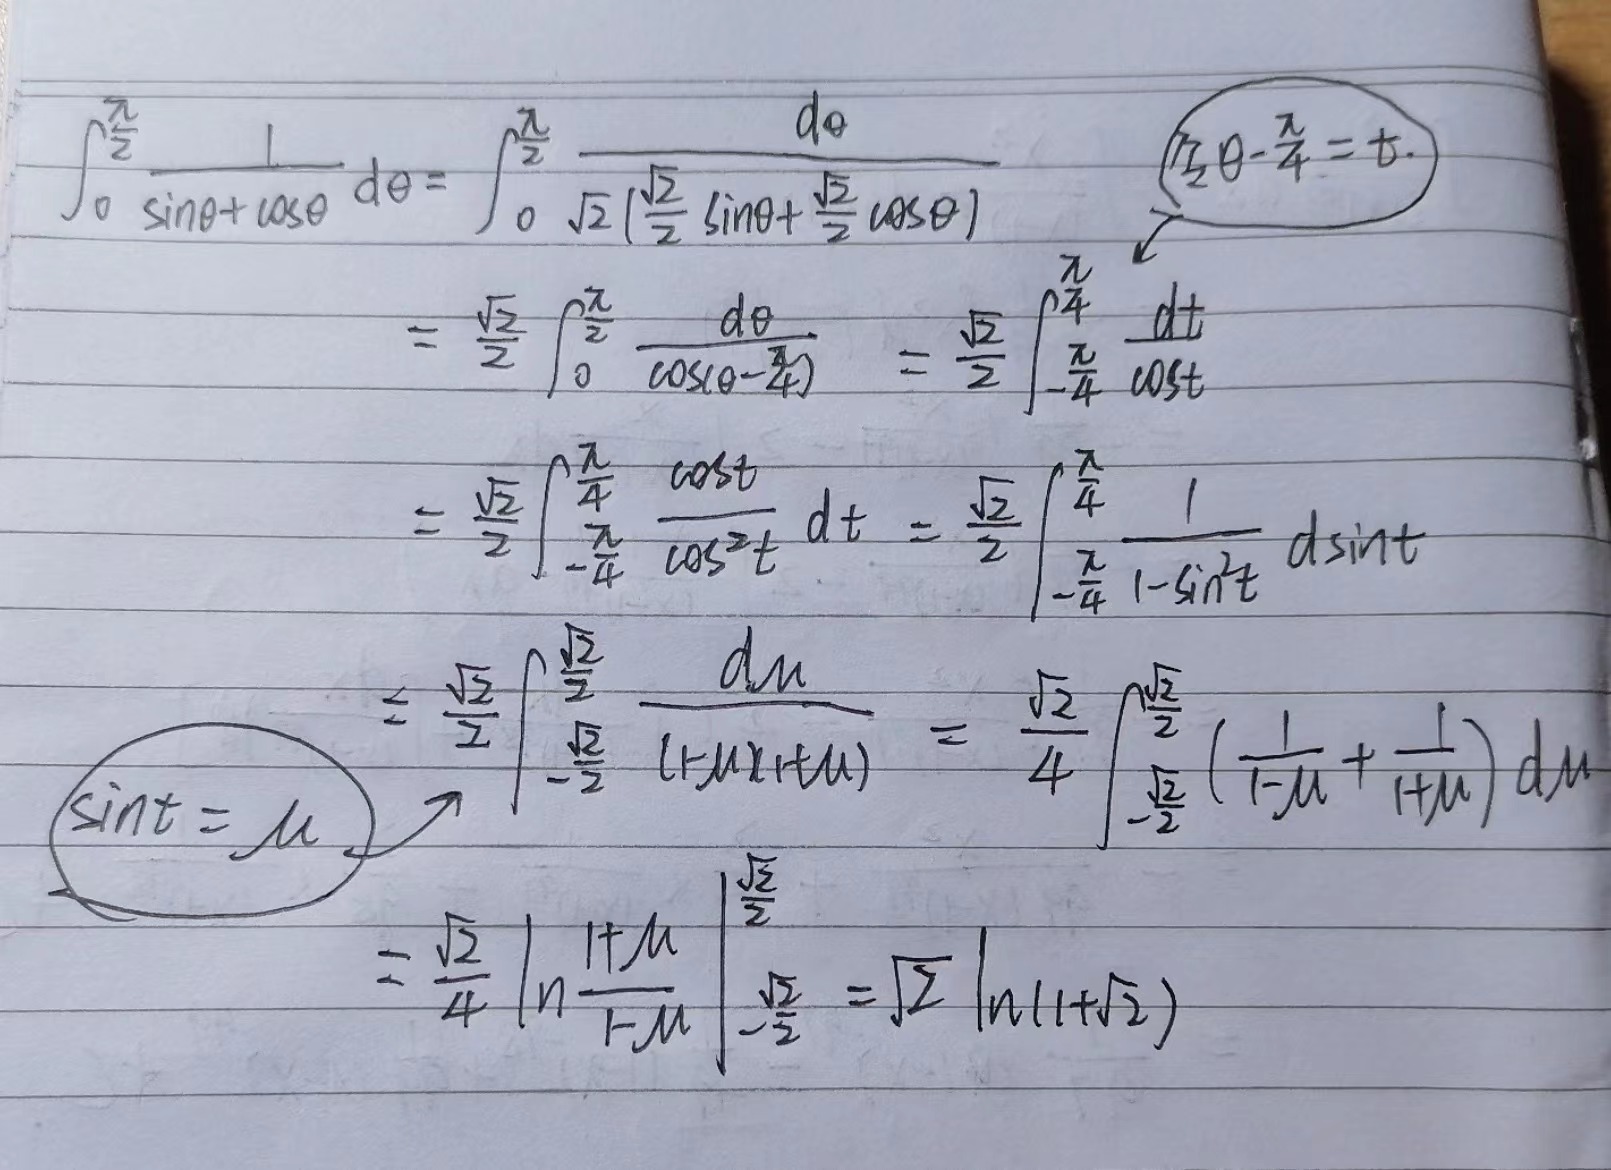 ∫_0^{π/2} 1/(sinθ+cosθ) dθ = ∫_0^{π/2} dθ/(√2(√2/2 sinθ+√2/2 cosθ))
令θ-π/4=t.
= √2/2 ∫_0^{π/2} dθ/cos(θ-π/4) = √2/2 ∫_{-π/4}^{π/4} dt/cost
= √2/2 ∫_{-π/4}^{π/4} cost/cos²t dt = √2/2 ∫_{-π/4}^{π/4} 1/(1-sin²t) dsint
= √2/2 ∫_{-√2/2}^{√2/2} dμ/((1-μ)(1+μ)) = √2/4 ∫_{-√2/2}^{√2/2} (1/(1-μ)+1/(1+μ)) dμ
sint=μ
= √2/4 ln (1+μ)/(1-μ) |_{-√2/2}^{√2/2} = √2 ln(1+√2)